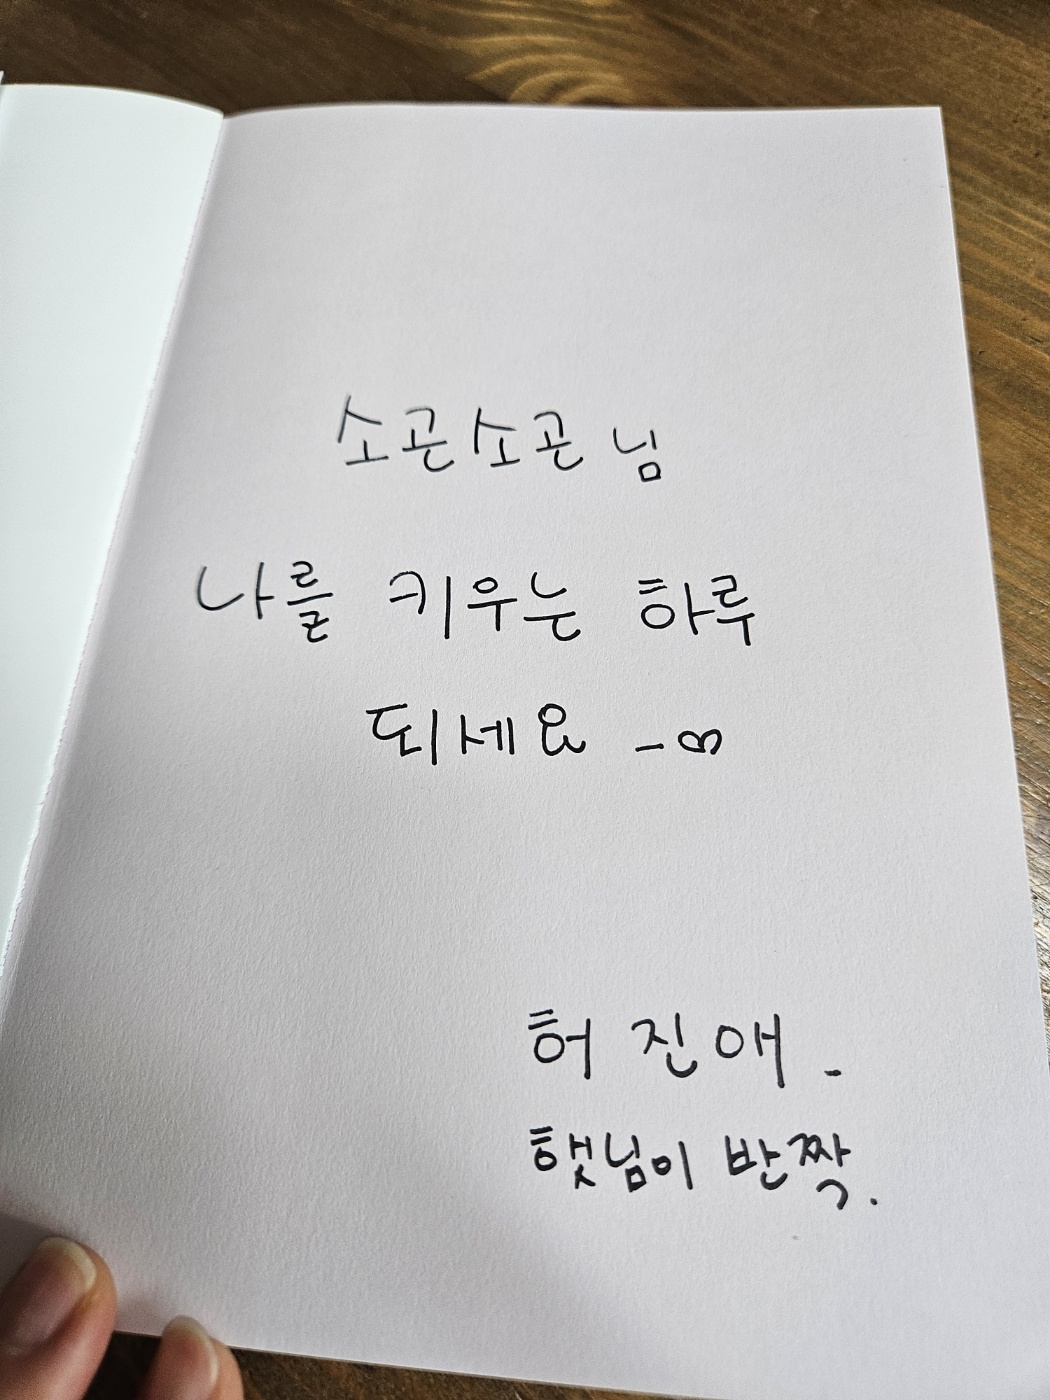 소곤소곤 님
나를 키우는 하루
되세요 -∞
허진애 -
햇님이 반짝.